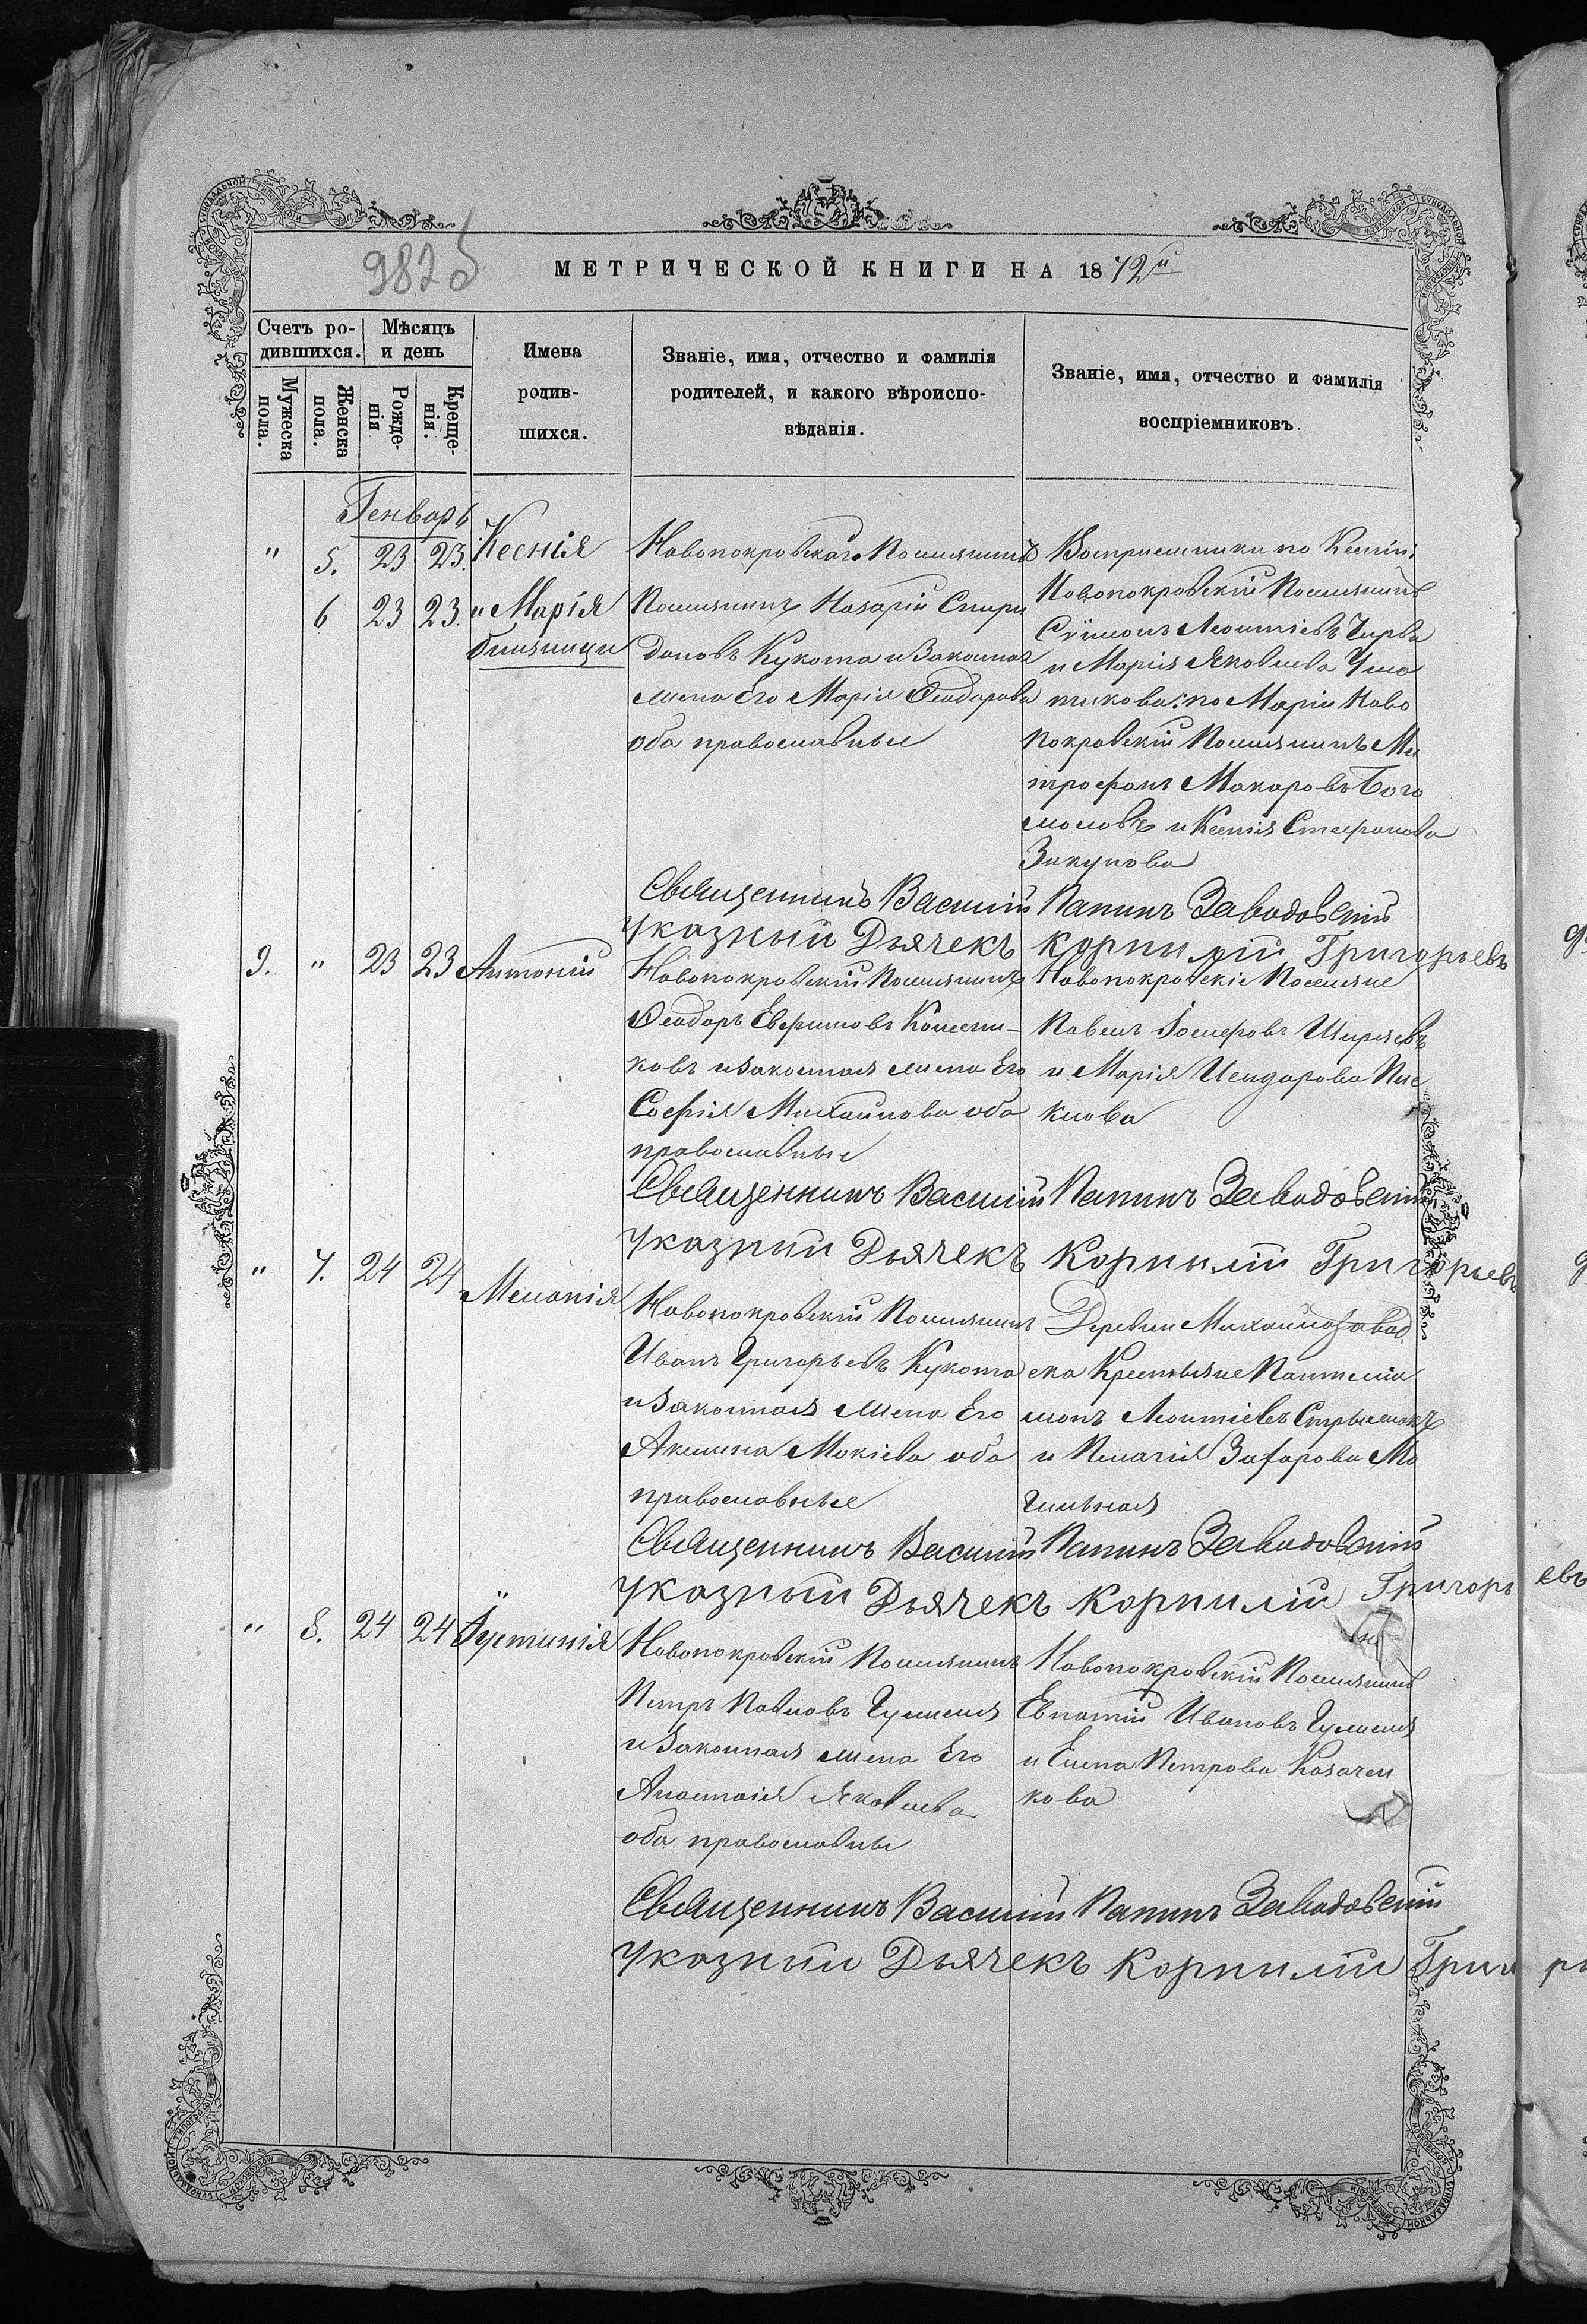 982 б
МЕТРИЧЕСКОЙ КНИГИ НА 1872й
Счетъ ро-
дившихся.
Мѣсяцъ
и день
Мужеска
пола.
Женска
пола.
Рожде-
нія
Креще-
нія.
Имена
родив-
шихся.
Званіе, имя, отчество и фамилія
родителей, и какого вѣроиспо-
вѣданія.
Званіе, имя, отчество и фамилія
воспріемниковъ.
Генварь
" 5. 23 23. Ксенія
6 23 23. и Марія
близнецы
Новопокровскаго Поселянинъ
Поселянинъ Назарій Спири
доновъ Кукота и Законная
жена Его Марія Ѳеодорова
оба православные
Восприемники по Ксеніи:
Новопокровскій Поселянинъ
Сѵмонъ Леонтіевъ Чирва
и Марія Яковлева
по Маріи Ново
покровскій Поселянинъ Ми
трофанъ Макаровъ Бого
моловъ и Ксенія Стефанова
Зикунова
Священникъ Василій Папинъ Заводовскій
Указный Дьячекъ Корнилій Григорьевъ
9. " 23 23 Антоній
Новопокровскій Поселянинъ
Ѳеодоръ Евфимовъ Колесни-
ковъ и законная жена Его
Софія Михайлова оба
православные
Новопокровскіе Поселяне
Павелъ Іосифовъ Ширяевъ
и Марія Исидорова
Священникъ Василій Папинъ Заводовскій
Указный Дьячекъ Корнилій Григорьевъ
" 7. 24 24 Меланія
Новопокровскій Поселянинъ
Иванъ Григорьевъ Кукота
и законная жена Его
Акилина Мокіева оба
православные
Деревни Михайлозавод
ска Крестьяне Пантелии
монъ Леонтіевъ
и Пелагія Захарова Мо
гильная
Священникъ Василій Папинъ Заводовскій
Указный Дьячекъ Корнилій Григорьевъ
" 8. 24 24 Іустинія
Новопокровскій Поселянинъ
Петръ Павловъ Гуменя
и Законная жена Его
Анастасія Яковлева
оба православны
Новопокровскій Поселянинъ
Евпатій Ивановъ Гуменя
и Елена Петрова Казачен
кова
Священникъ Василій Папинъ Заводовскій
Указный Дьячекъ Корнилій